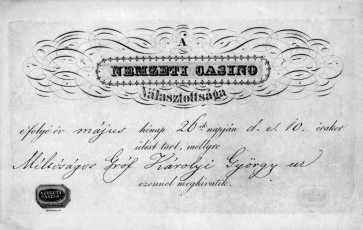 A
NEMZETI CASINO
Választottsága
e folyó év május hónap 26ik napján d. e. 10. órakor
ülést tart, mellyre
Méltóságos Gróf Károlyi György ur
ezennel meghivatik.
NEMZETI
CASINO